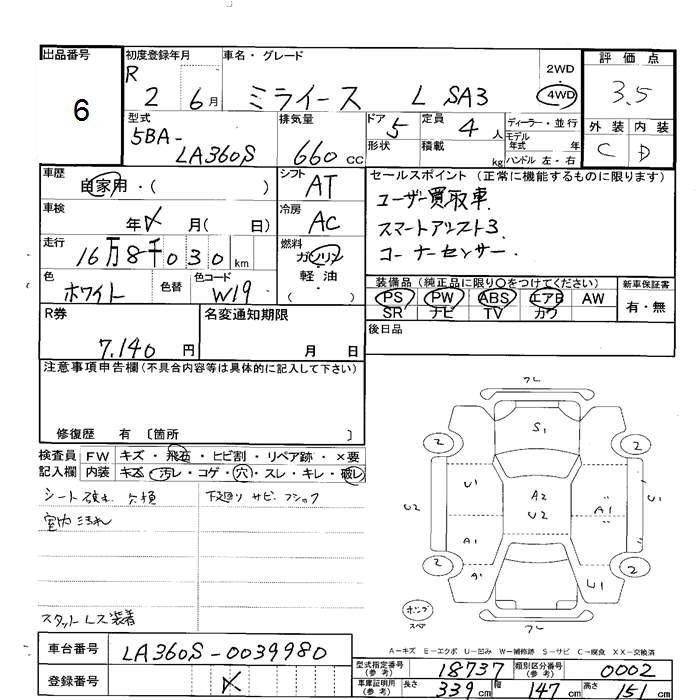 出品番号 初度登録年月 車名・グレード 評価点
6
R 2 6月 ミライース L SA3
2WD
4WD
3.5
型式 排気量 ドア 定員 ディーラー・並行
5BA-
LA360S 660 CC 5 4人
モデル年式 年
形状 積載 kg ハンドル 左・右
外装 内装
C D
車歴 自家用・( )
シフト AT
セールスポイント (正常に機能するものに限ります)
ユーザー買取車.
スマートアシスト3
コーナーセンサー.
車検 年 月( 日)
冷房 AC
走行 16万8千030km
燃料 ガソリン
軽・油
( )
色 ホワイト 色替 色コード W19
装備品(純正品に限り○をつけてください) 新車保証書
PS PW ABS エアB AW
SR ナビ TV カワ
有・無
R券 7.140円
名変通知期限 月 日
後日品
注意事項申告欄(不具合内容等は具体的に記入して下さい)
修復歴 有 〔箇所 〕
検査員 FW キズ・飛石・ヒビ割・リペア跡・×要
記入欄 内装 キズ・汚レ・コゲ・穴・スレ・キレ・破レ
シート破れ 欠損 下廻りサビ
室内汚れ
スタットレス装着
フレ
S1
2 2
U1 A2 U2 A1 U1
U2
A1
2 2
A1 U1
フレ
スペア
A-キズ E-エクボ U-凹み W-補修跡 S-サビ C-腐食 XX-交換済
車台番号 LA360S-0039980
登録番号
型式指定番号(参考) 18737 類別区分番号(参考) 0002
車庫証明用(参考) 長さ 339cm 幅 147cm 高さ 151cm